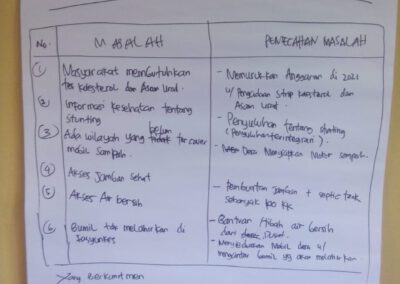 No. MASALAH PEMECAHAN MASALAH
1 Masyarakat membutuhkan
tes kolesterol dan Asam Urat.
- Memasukkan Anggaran di 2021
u/ Pengadaan Strip kolesterol dan
Asam urat.
2 Informasi kesehatan tentang
stunting
- Penyuluhan tentang stunting
(Penyuluhan terintegrasi).
3 Ada wilayah yang belum ter cover
mobil sampah.
- Desa Menyiapkan Motor sampah.
4 Akses Jamban sehat
- Pembuatan Jamban + septic tank
sebanyak 100 KK
5 Akses Air bersih
- Bantuan Hibah air bersih
dari Pusat.
6 Bumil tdk melahirkan di
Fasyankes
- Menyediakan Mobil desa u/
mengantar bumil yg akan melahirkan
Yang Berkomitmen